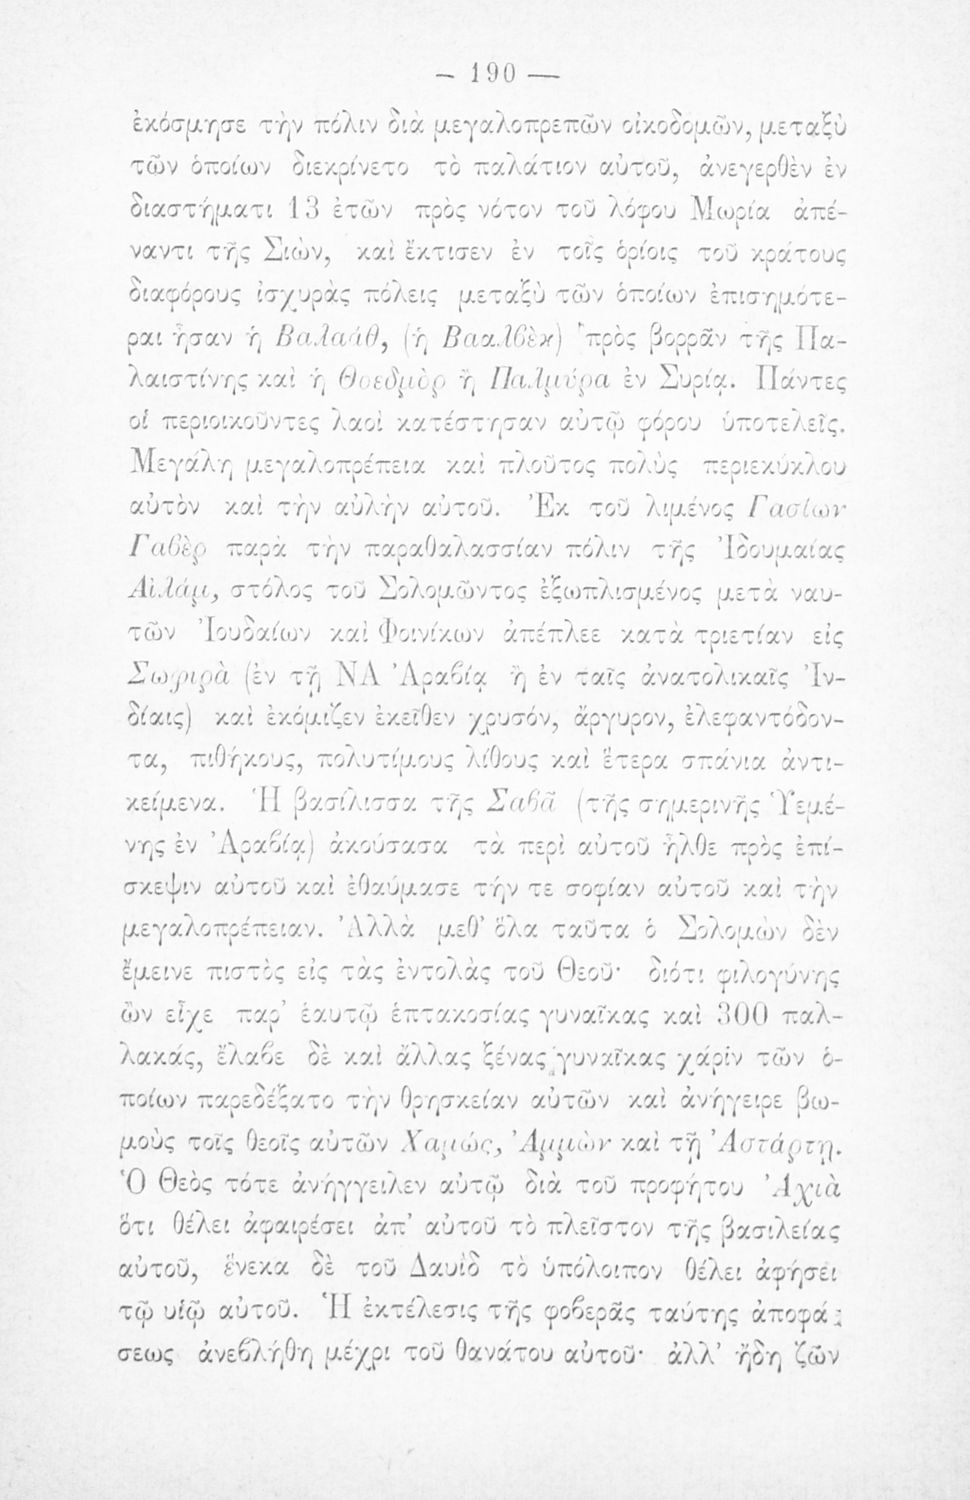 — 190 —
ἐκόσμησε τὴν πόλιν διὰ μεγαλοπρεπῶν οἰκοδομῶν, μεταξὺ
τῶν ὁποίων διεκρίνετο τὸ παλάτιον αὐτοῦ, ἀνεγερθὲν ἐν
διαστήματι 13 ἐτῶν πρὸς νότον τοῦ λόφου Μωρία ἀπέ-
ναντι τῆς Σιὼν, καὶ ἔκτισεν ἐν τοῖς ὁρίοις τοῦ κράτους
διαφόρους ἰσχυρὰς πόλεις μεταξὺ τῶν ὁποίων ἐπισημότε-
ραι ἦσαν ἡ Βαλαάθ, (ἡ Βααλβὲκ) πρὸς βορρᾶν τῆς Πα-
λαιστίνης καὶ ἡ Θοεδμὸρ ἢ Παλμύρα ἐν Συρίᾳ. Πάντες
οἱ περιοικοῦντες λαοὶ κατέστησαν αὐτῷ φόρου ὑποτελεῖς.
Μεγάλη μεγαλοπρέπεια καὶ πλοῦτος πολὺς περιεκύκλου
αὐτὸν καὶ τὴν αὐλὴν αὐτοῦ. Ἐκ τοῦ λιμένος Γασίων
Γαβὲρ παρὰ τὴν παραθαλασσίαν πόλιν τῆς Ἰδουμαίας
Αἰλάμ, στόλος τοῦ Σολομῶντος ἐξωπλισμένος μετὰ ναυ-
τῶν Ἰουδαίων καὶ Φοινίκων ἀπέπλεε κατὰ τριετίαν εἰς
Σωφιρὰ (ἐν τῇ ΝΑ Ἀραβίᾳ ἢ ἐν ταῖς ἀνατολικαῖς Ἰν-
δίαις) καὶ ἐκόμιζεν ἐκεῖθεν χρυσόν, ἄργυρον, ἐλεφαντόδον-
τα, πιθήκους, πολυτίμους λίθους καὶ ἕτερα σπάνια ἀντι-
κείμενα. Ἡ βασίλισσα τῆς Σαβᾶ (τῆς σημερινῆς Ὑεμέ-
νης ἐν Ἀραβίᾳ) ἀκούσασα τὰ περὶ αὐτοῦ ἦλθε πρὸς ἐπί-
σκεψιν αὐτοῦ καὶ ἐθαύμασε τήν τε σοφίαν αὐτοῦ καὶ τὴν
μεγαλοπρέπειαν. Ἀλλὰ μεθ' ὅλα ταῦτα ὁ Σολομὼν δὲν
ἔμεινε πιστὸς εἰς τὰς ἐντολὰς τοῦ Θεοῦ· διότι φιλογύνης
ὢν εἶχε παρ' ἑαυτῷ ἑπτακοσίας γυναῖκας καὶ 300 παλ-
λακάς, ἔλαβε δὲ καὶ ἄλλας ξένας γυναῖκας χάριν τῶν ὁ-
ποίων παρεδέξατο τὴν θρησκείαν αὐτῶν καὶ ἀνήγειρε βω-
μοὺς τοῖς θεοῖς αὐτῶν Χαμώς, Ἀμμὼν καὶ τῇ Ἀστάρτῃ.
Ὁ Θεὸς τότε ἀνήγγειλεν αὐτῷ διὰ τοῦ προφήτου Ἀχιὰ
ὅτι θέλει ἀφαιρέσει ἀπ' αὐτοῦ τὸ πλεῖστον τῆς βασιλείας
αὐτοῦ, ἕνεκα δὲ τοῦ Δαυὶδ τὸ ὑπόλοιπον θέλει ἀφήσει
τῷ υἱῷ αὐτοῦ. Ἡ ἐκτέλεσις τῆς φοβερᾶς ταύτης ἀποφά-
σεως ἀνεβλήθη μέχρι τοῦ θανάτου αὐτοῦ· ἀλλ' ἤδη ζῶν